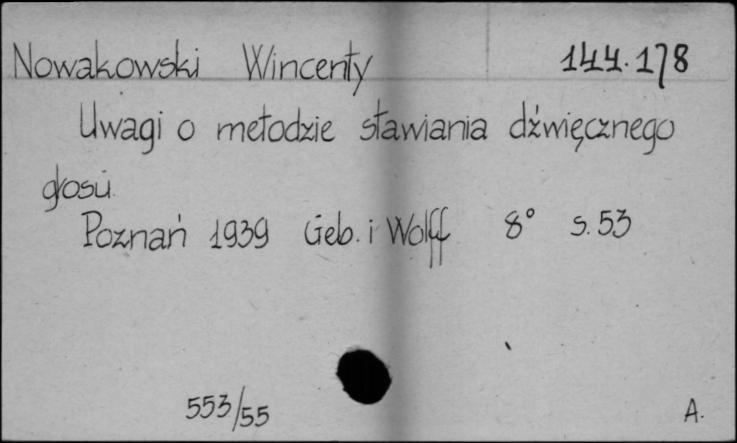 Nowakowski Wincenty 144.178
Uwagi o metodzie stawiania dźwięcznego
głosu.
Poznań 1939 Geb. i Wolff 8° s. 53
553/55 A.